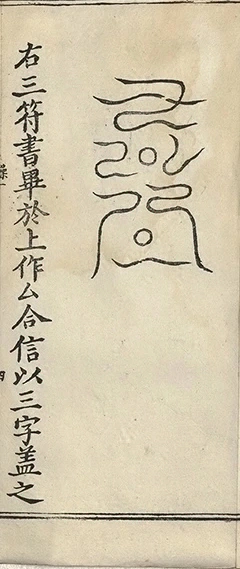 右三符書畢於上作厶合信以三字盖之